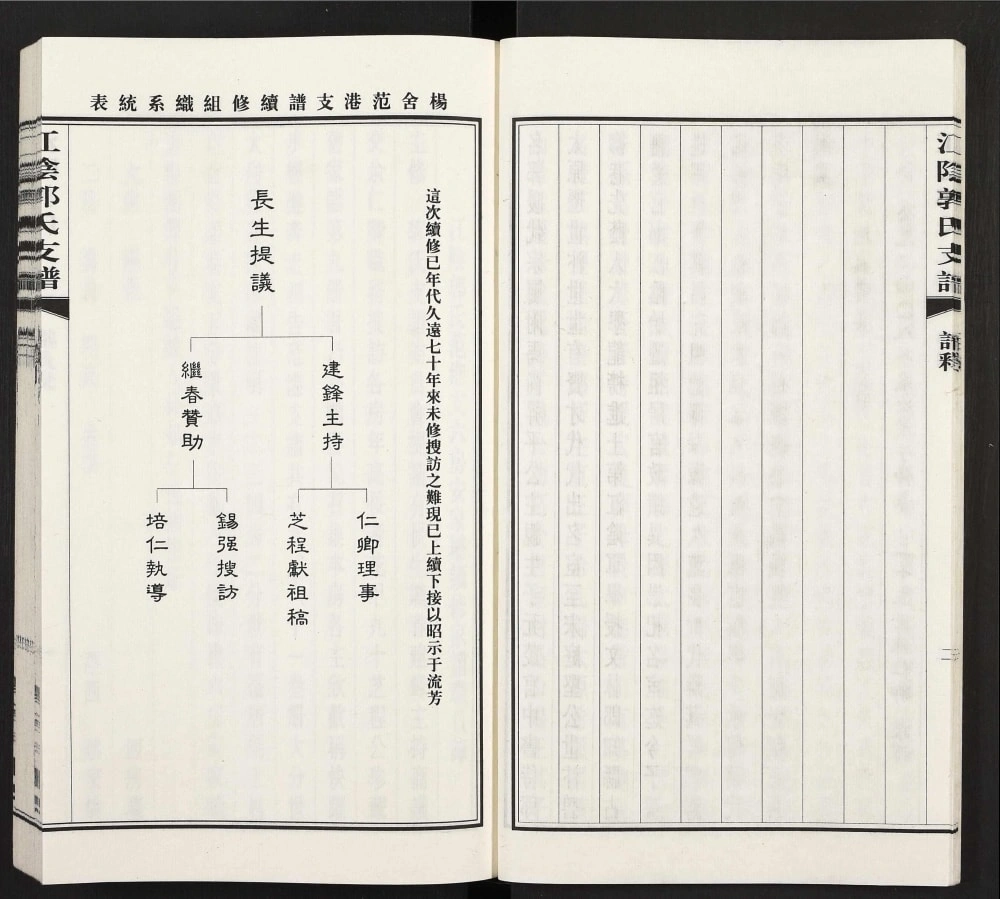 江陰郭氏支譜
譜釋
二
楊舍范港支譜續修組織系統表
這次續修已年代久遠七十年來未修搜訪之難現已上續下接以昭示于流芳
長生提議
建鋒主持
繼春贊助
仁卿理事
芝程獻祖稿
錫强搜訪
培仁執導
江陰郭氏支譜